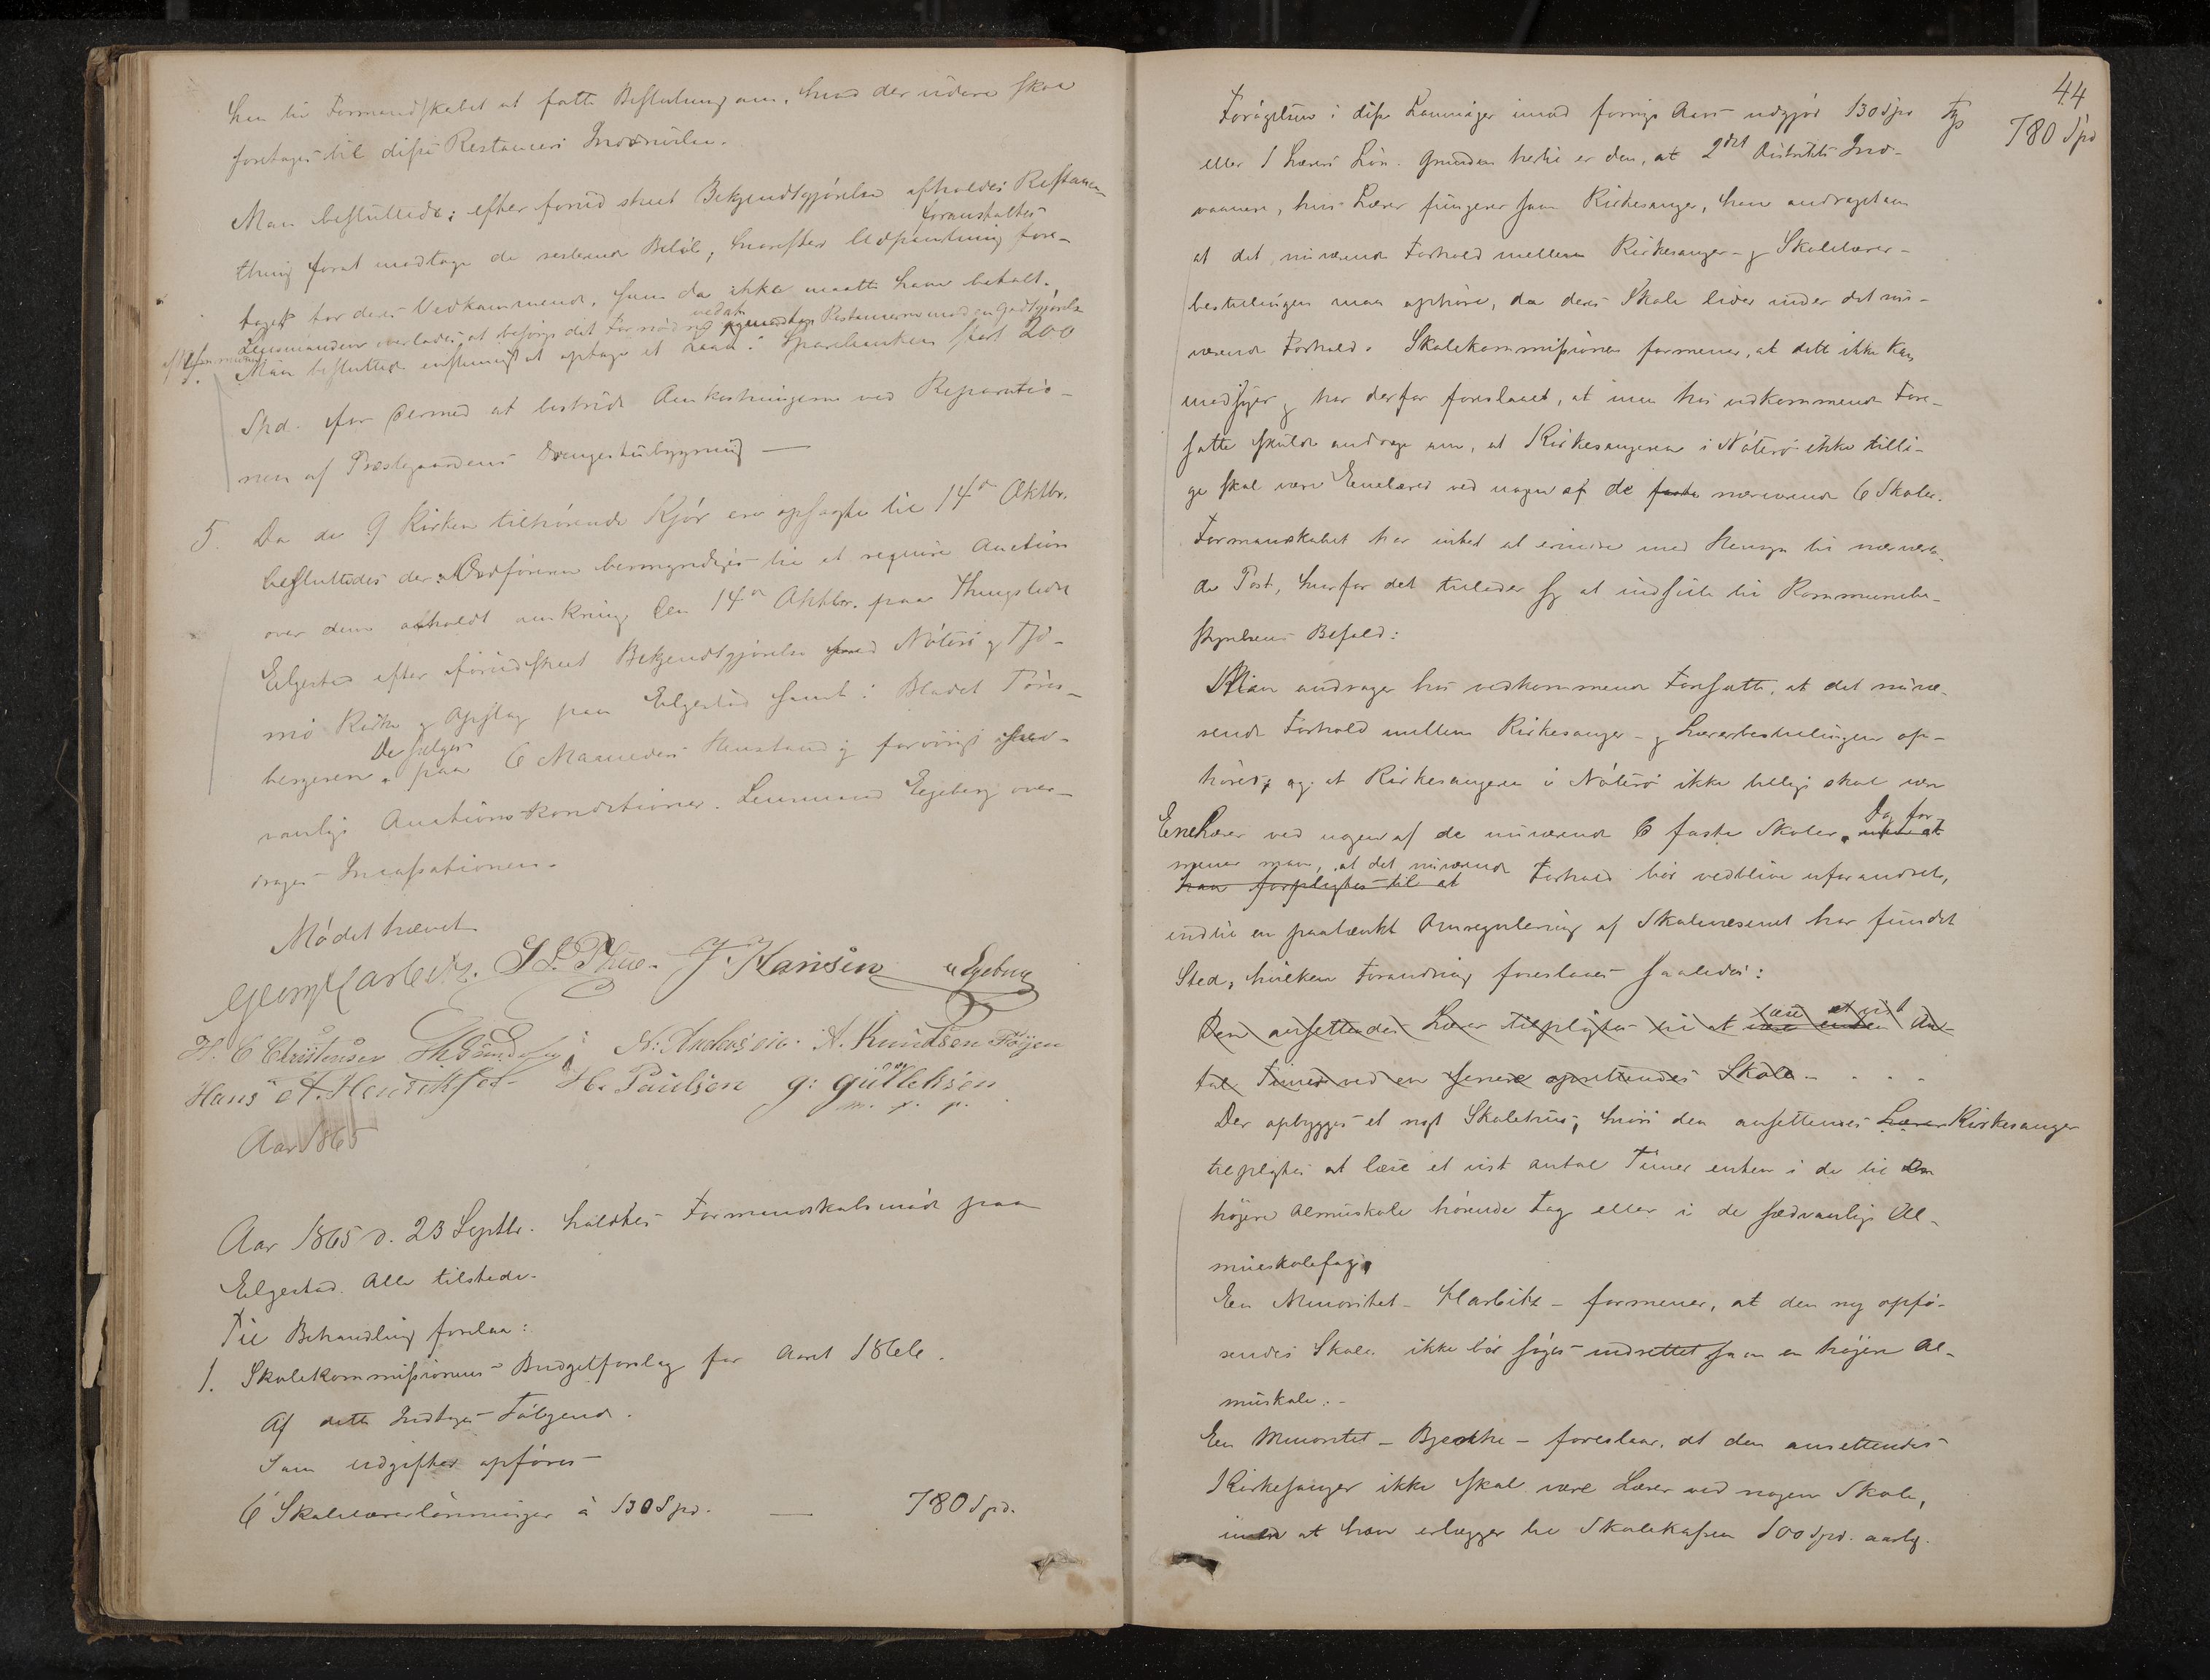 hen til Formandskabet at fatte Beslutning om, hvad der videre skal
foretages til disse Restancers Inddrivelse.
Man besluttede: efter forud skeet Bekjendtgjørelse afholdes Restance
thing forat modtage de resterende Beløb, hvorefter Udpantning fore-
foranstaltes
taget for deres Vedkommende, som da ikke maatte have betalt.
Lensmanden overlades at besørge det Fornødne ved at Restancerne mod en Godtgjørelse
4. Man besluttede enstemmigt at optage et Laan i Sparebanken stort 200
Spd. for dermed at bestride Omkostningerne ved Reparatio-
nen af Præstegaardens Drengestubygning —
5. Da de 9 Kirken tilhørende Kjør ere opsagte til 14de Oktbr.
besluttedes der at Ordføreren bemyndiges til at requirere Auction
over dem afholdt omkring den 14de Oktbr. paa Thingstedet
Elgestad efter forudskeet Bekjendtgjørelse ved Nøterø og Tjø-
mø Kirke og Opslag paa Elgestad samt i Bladet Tøns-
bergeren. De sælges paa 6 Maaneders Henstand og forøvrigt sæd-
vanlige Auctions-Konditioner. Lensmand Egeberg over-
drages Incassationen.
Mødet hævet
Georg Harbitz. J. Hansen Egeberg
H. C Christensen N: Andersen. A. Knudsen Føijen
Hans A. Henriksen H. Paulsen g: gulleksen
m. f. p.
Aar 1865
Aar 1865 d. 23 Septbr. holdtes Formandskabsmøde paa
Elgestad. Alle tilstede.
Til Behandling forelaa:
1. Skolekommissionens Budgetforslag for Aaret 1866.
Af dette Indtages Følgende.
Som udgifter opføres
6 Skolelærerlønninger à 130 Spd. — 780 Spd.
44
Forøgelsen i disse Lønninger imod forrige Aars udgjør 130 Spd 780 Spd
eller 1 Lærers Løn. Grunden hertil er den, at 2det Distrikts Ind-
vaanere, hvis Lærer fungerer som Kirkesanger, have andraget om
at det nuværende Forhold mellem Kirkesanger- og Skolelærer-
bestillingen maa ophøre, da deres Skole lider under det nu-
værende Forhold. Skolekommissionen formener, at dette ikke kan
undgaaes og har derfor foreslaaet, at man hos vedkommende Fore-
satte skulde andrage om, at Kirkesangeren i Nøterø ikke tilli-
ge skal være Enelærer ved nogen af de faste nuværende 6 Skoler.
Formandskabet har intet at erindre med Hensyn til nærværen-
de Post, hvorfor det tillader sig at indstille til Kommunebe-
styrelsens Befald:
Man andrager hos vedkommende Foresatte, at det nuvæ-
rende Forhold mellem Kirkesanger- og Lærerbestillingen op-
hører, og at Kirkesangeren i Nøterø ikke tillige skal være
Enelærer ved nogen af de nuværende 6 faste Skoler. Dog for-
mener man, at det nuværende
han forpligtes til at Forhold bør vedblive uforandret,
indtil en paatænkt Omregulering af Skolevæsenet har fundet
Sted, hvilken Forandring foreslaaes saaledes:
Den ansættendes Lærer tilpligtes til at læse et vist An-
tal Timer ved en senere oprettendes Skole - . . -
Der opbygges et nyt Skolehus, hvori den ansettendes Lærer Kirkesanger
tilpligtes at læse et vist antal Timer enten i de til en
højere Almueskole hørende Fag eller i de sædvanlige Al-
mueskolefag.
En Minoritet - Harbitz - formener, at den ny opfø-
rendes Skole ikke bør søges indrettet som en højere Al-
mueskole. -
En Minoritet - Bjerke - foreslaar, at den ansettendes
Kirkesanger ikke skal være Lærer ved nogen Skole,
men at han erlægger til Skolekassen 100 Spd. aarlig.